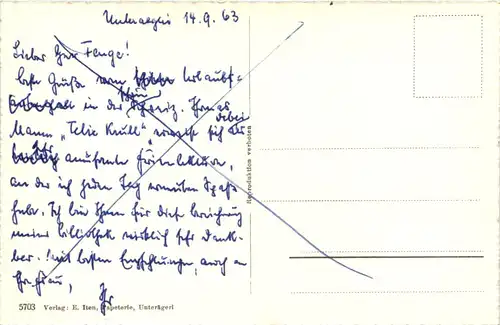 Unteraegeri 14.9.63
Lieber Herr Fenge!
beste Grüße vom schönen Urlaubs-
aufenthalt in der Schweiz. Thomas
Mann „Felix Krull" erweist sich dabei als
amüsante Ferienlektüre,
an der ich jeden Tag erneuten Spaß
habe. Ich bin Ihnen für diese Bereicherung
meiner Bibliothek wirklich sehr dank-
bar. Mit besten Empfehlungen, auch an
Ihre Frau,
Ihr
Reproduktion verboten
5703 Verlag: E. Iten, Papeterie, Unterägeri